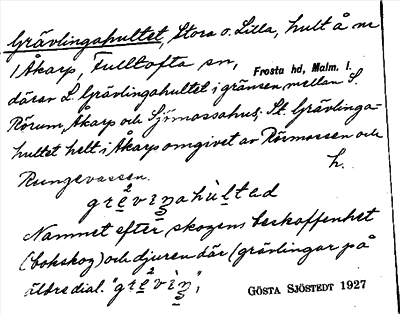 Grävlingahultet, Stora o. Lilla, hult å nr
1 Åkarp, Fulltofta sn, Frosta hd, Malm. l.
därav L. Grävlingahultet i gränsen mellan S.
Rörum, Åkarp och Sjömossahus; St. Grävlinga-
hultet helt i Åkarp omgivet av Rörmossen och
Rungevassen. h.
Namnet efter skogens beskaffenhet
(bokskog) och djuren där (grävlingar på
äldre dial.
GÖSTA SJÖSTEDT 1927